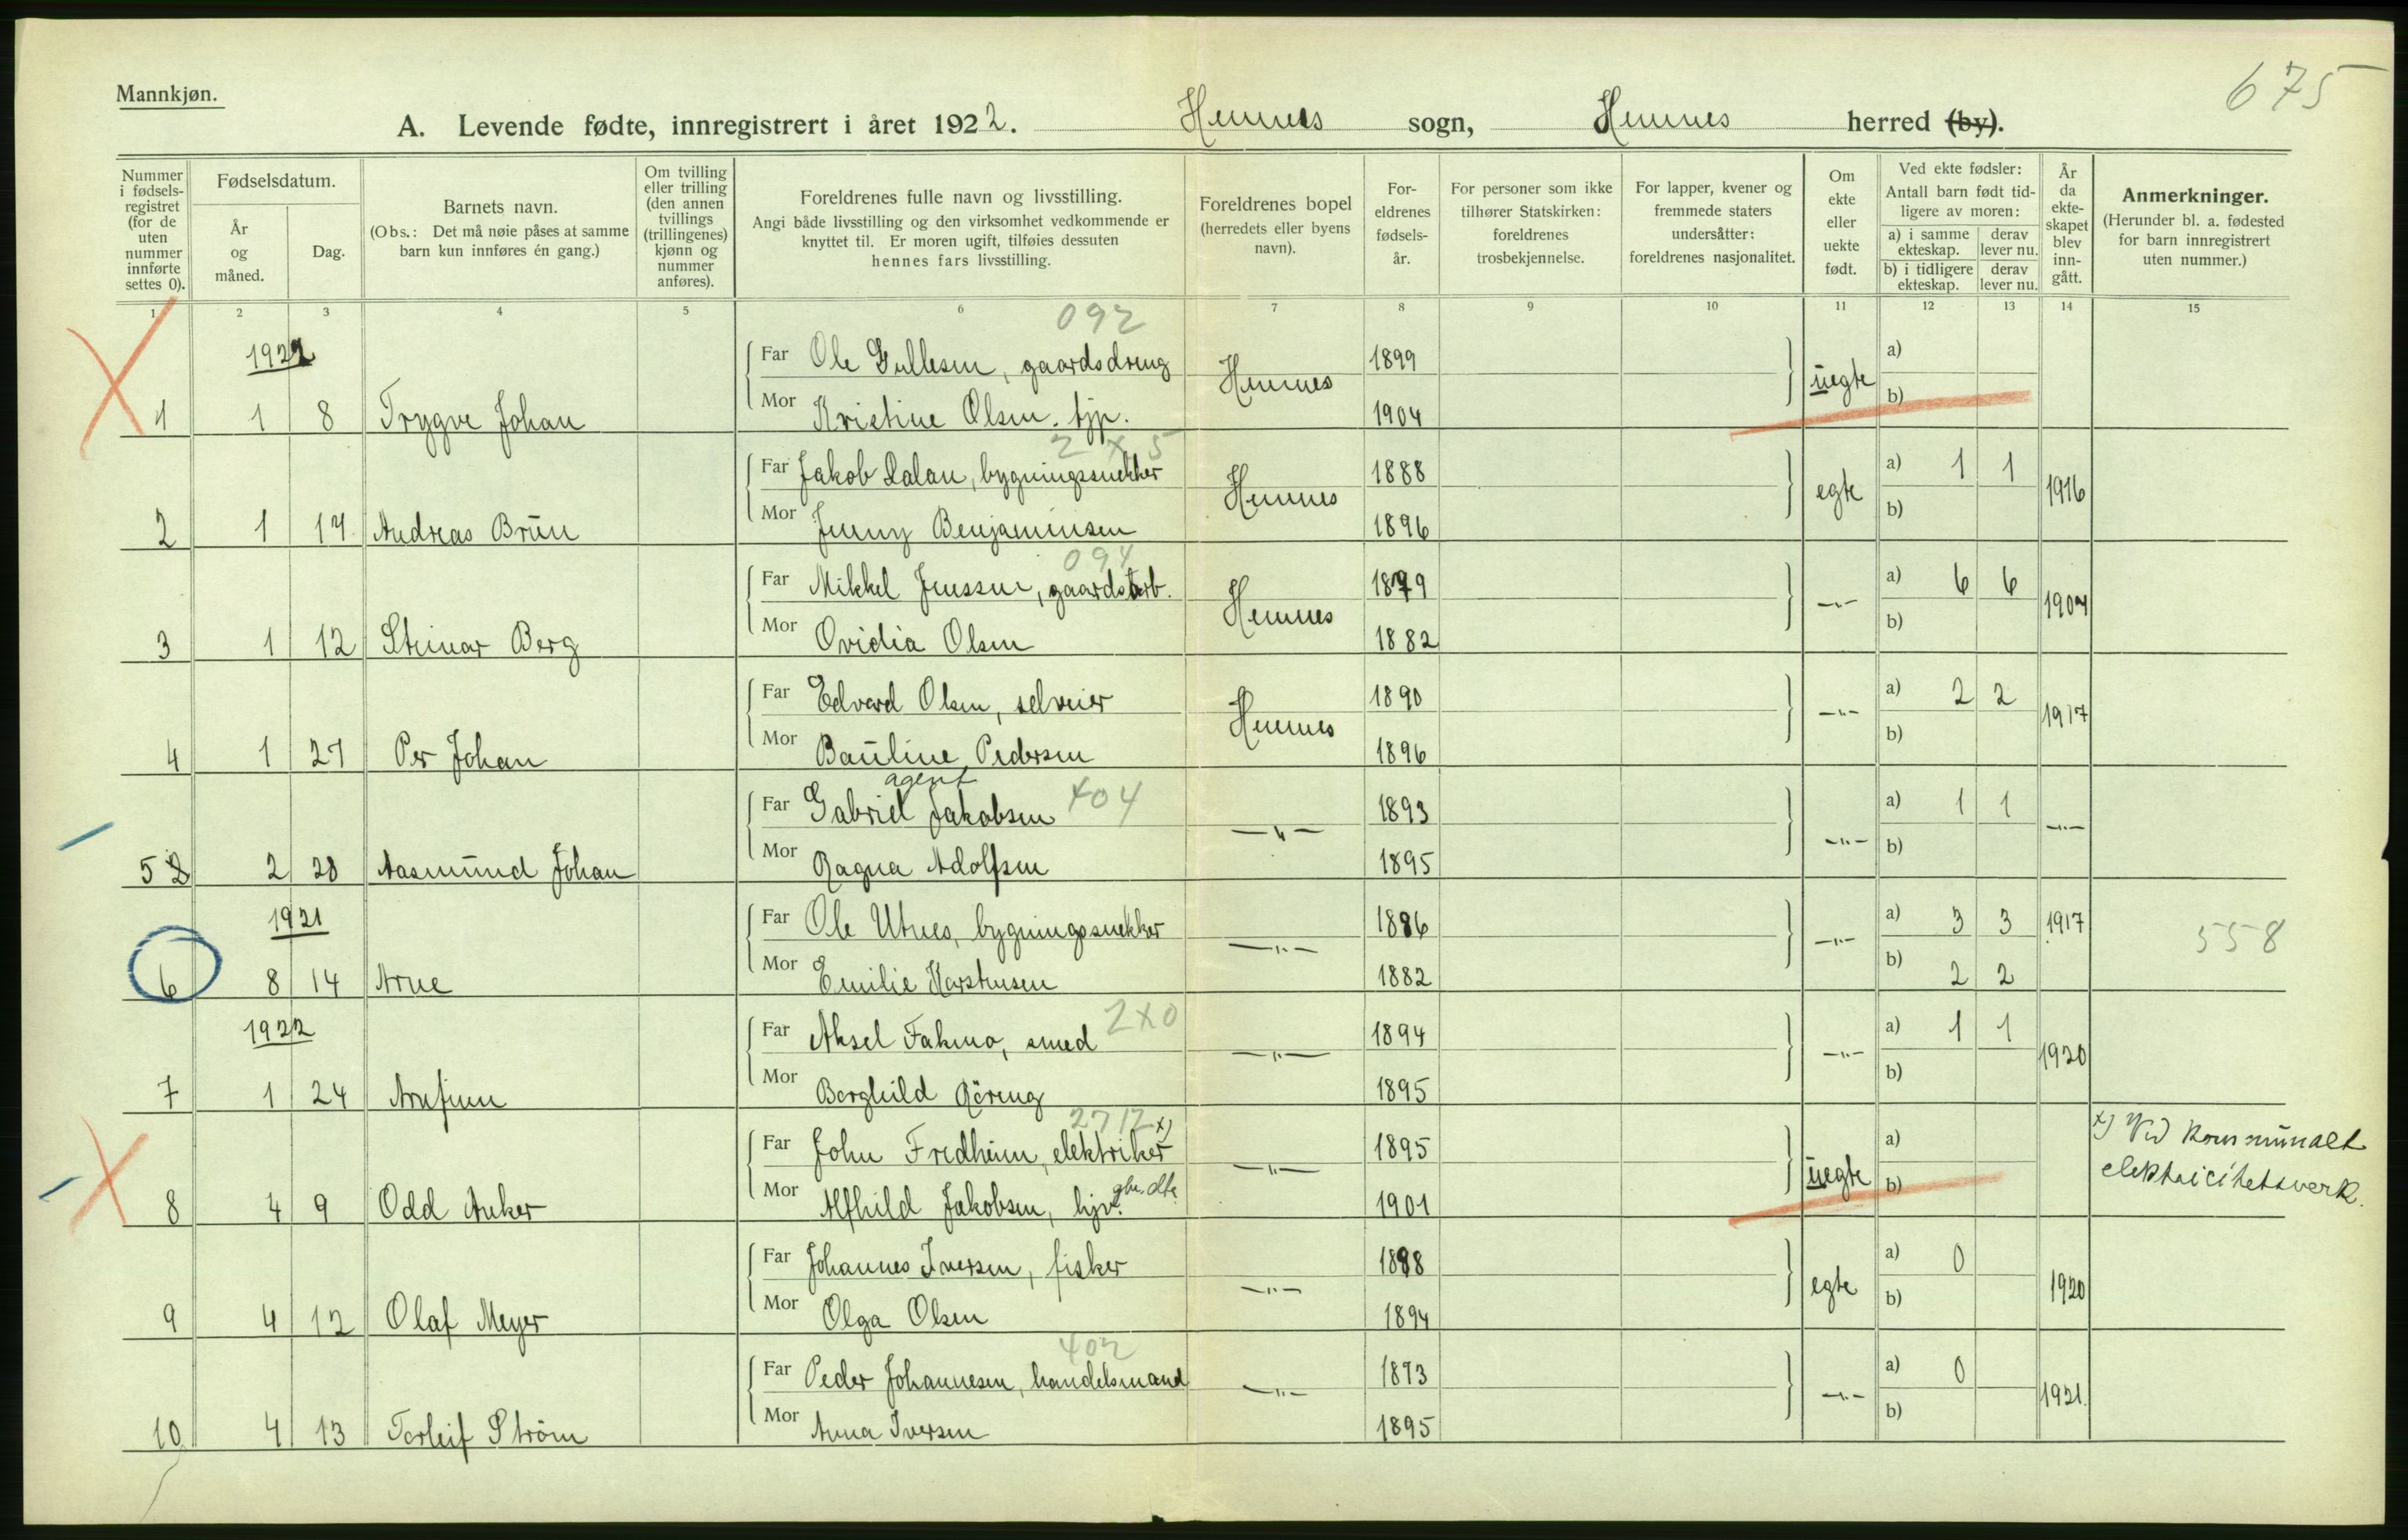 675
Mannkjøn.
A. Levende fødte, innregistrert i året 1922. Hemnes sogn, Hemnes herred (by).
Nummer i fødsels-registret (for de uten nummer innførte settes 0).
Fødselsdatum.
År og måned.
Dag.
Barnets navn.
(Obs.: Det må nøie påses at samme barn kun innføres én gang.)
Om tvilling eller trilling (den annen tvillings (trillingenes) kjønn og nummer anføres).
Foreldrenes fulle navn og livsstilling.
Angi både livsstilling og den virksomhet vedkommende er knyttet til. Er moren ugift, tilføies dessuten hennes fars livsstilling.
Foreldrenes bopel (herredets eller byens navn).
For-eldrenes fødsels-år.
For personer som ikke tilhører Statskirken: foreldrenes trosbekjennelse.
For lapper, kvener og fremmede staters undersåtter: foreldrenes nasjonalitet.
Om ekte eller uekte født.
Ved ekte fødsler: Antall barn født tid-ligere av moren:
a) i samme ekteskap. derav lever nu.
b) i tidligere ekteskap. derav lever nu.
År da ekte-skapet blev inn-gått.
Anmerkninger.
(Herunder bl. a. fødested for barn innregistrert uten nummer.)
1 2 3 4 5 6 7 8 9 10 11 12 13 14 15
092
1922
Far Ole Gullesen, gaardsdreng 1899 a)
Hemnes uegte
1 1 8 Trygve Johan Mor Kristine Olsen. tjp. 1904 b)
2 x 5
Far Jakob Dalan, bygningssnekker 1888 a) 1 1
Hemnes egte 1916
2 1 17 Andreas Brun Mor Jenny Benjaminsen 1896 b)
094
Far Mikkel Jenssen, gaardsarb. 1879 a) 6 6
Hemnes —"— 1904
3 1 12 Steinar Berg Mor Ovidia Olsen 1882 b)
Far Edvard Olsen, selveier 1890 a) 2 2
Hemnes —"— 1917
4 1 27 Per Johan Mor Pauline Pedersen 1896 b)
agent
Far Gabriel Jakobsen x04 1893 a) 1 1
—"— —"— —"—
5 2 28 Aasmund Johan Mor Ragna Adolfsen 1895 b)
1921
Far Ole Utnes, bygningssnekker 1886 a) 3 3 1917
—"— —"— 558
6 8 14 Arne Mor Emilie Karstensen 1882 b) 2 2
1922
Far Aksel Fakmo, smed 2x0 1894 a) 1 1
—"— —"— 1920
7 1 24 Arnfinn Mor Borghild Röreng 1895 b)
2712
Far John Fredheim, elektriker x) 1895 a)
—"— uegte x) Ved kommunalt elektricitetsverk.
8 4 9 Odd Anker Mor Alfhild Jakobsen, hjv. gbr. dtr. 1901 b)
Far Johannes Iversen, fisker 1888 a) 0
—"— egte 1920
9 4 12 Olaf Meyer Mor Olga Olsen 1894 b)
402
Far Peder Johannesen, handelsmand 1893 a) 0
—"— —"— 1921
10 4 13 Torleif Strøm Mor Anna Iversen 1895 b)